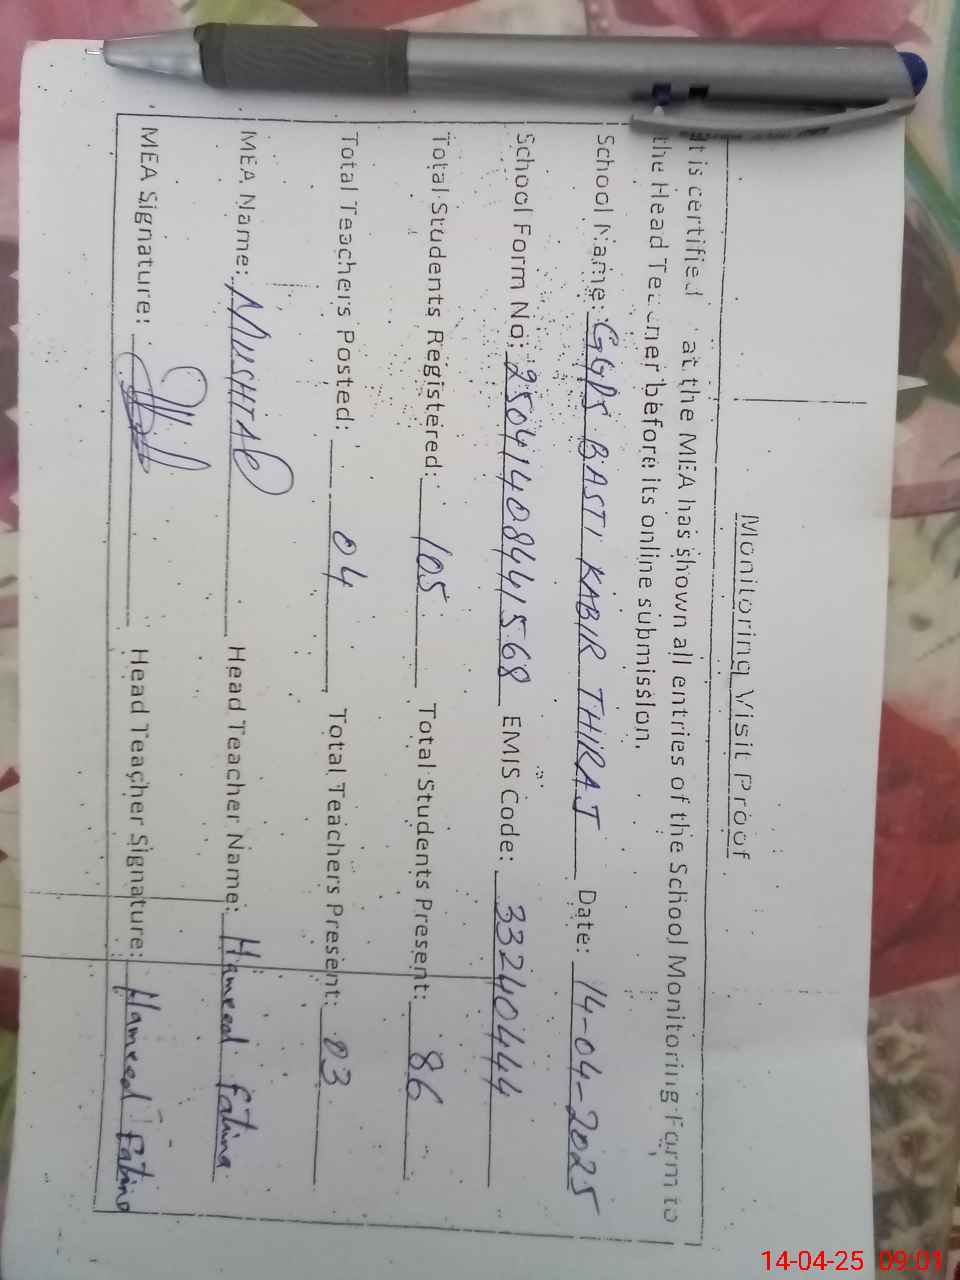 Monitoring Visit Proof
t is certified at the MEA has shown all entries of the School Monitoring Form to
the Head Teacher before its online submission.
School Name: GGPS BASTI KABIR THIRAJ Date: 14-04-2025
School Form No: 25041408441568 EMIS Code: 33240444
Total Students Registered: 105 Total Students Present: 86
Total Teachers Posted: 04 Total Teachers Present: 03
MEA Name: MUSHTAQ Head Teacher Name: Hameed Fatima
MEA Signature: Head Teacher Signature: Hameed Fatima
14-04-25 09:01